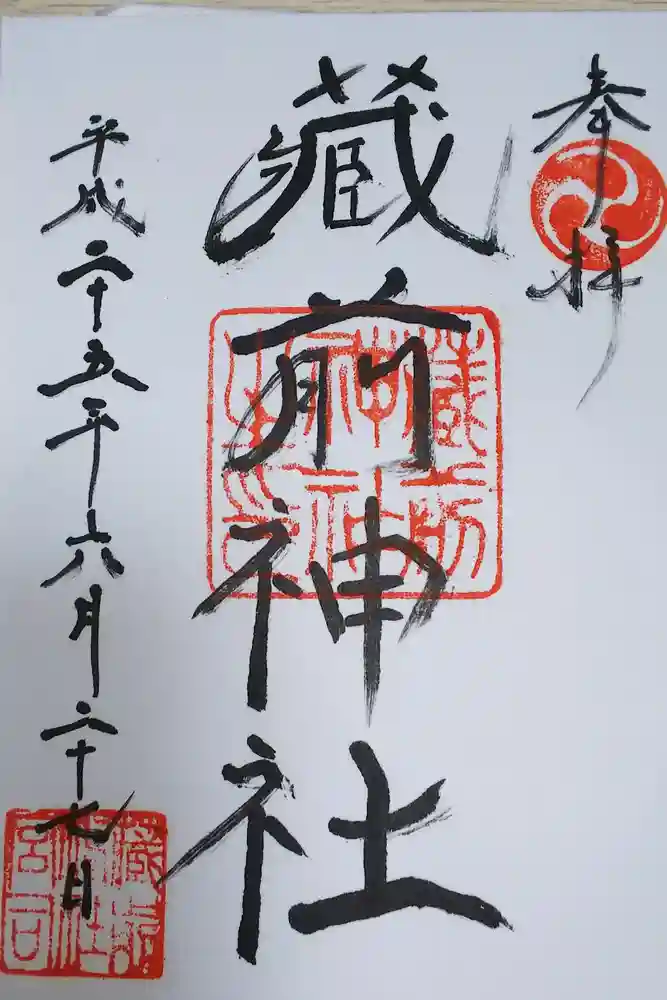 奉拝
藏前神社
平成二十五年六月二十七日
藏前神社之印
藏前神社宮司